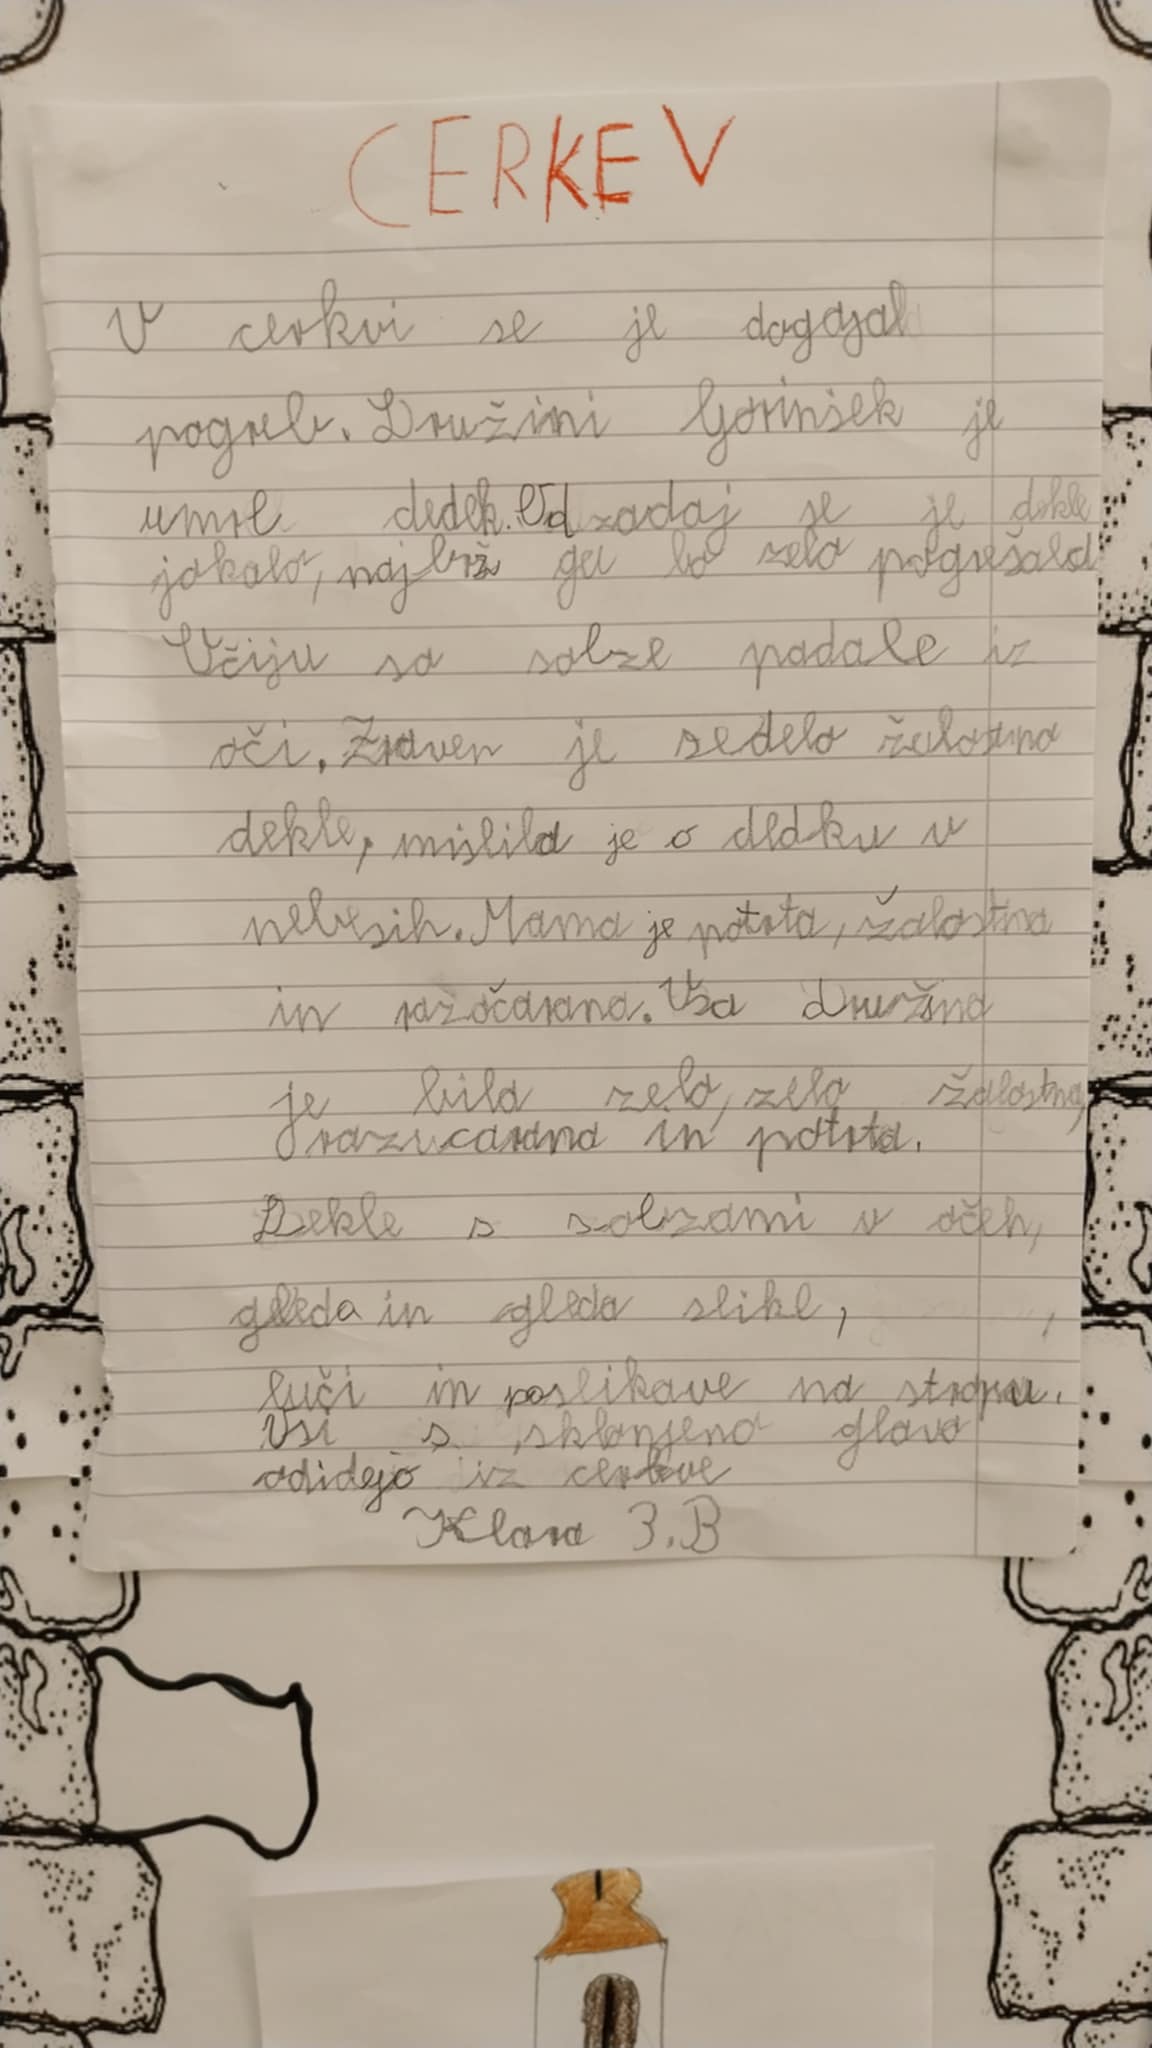 CERKEV
V cerkvi se je dogajal
pogreb. Družini Gorinšek je
umrl dedek. Od zadaj se je dekle
jokalo, najbrž ga bo zelo pogrešala
Očiju so solze padale iz
oči. Zraven je sedelo žalostno
dekle, mislila je o dedku v
nebesih. Mama je potrta, žalostna
in razočarana. Vsa družina
je bila zelo, zelo žalostna,
razucarana in potrta.
Dekle s solzami v očeh,
gleda in gleda slike,
luči in poslikave na stropu.
Vsi s sklonjeno glavo
odidejo iz cerkve
Klara 3.B